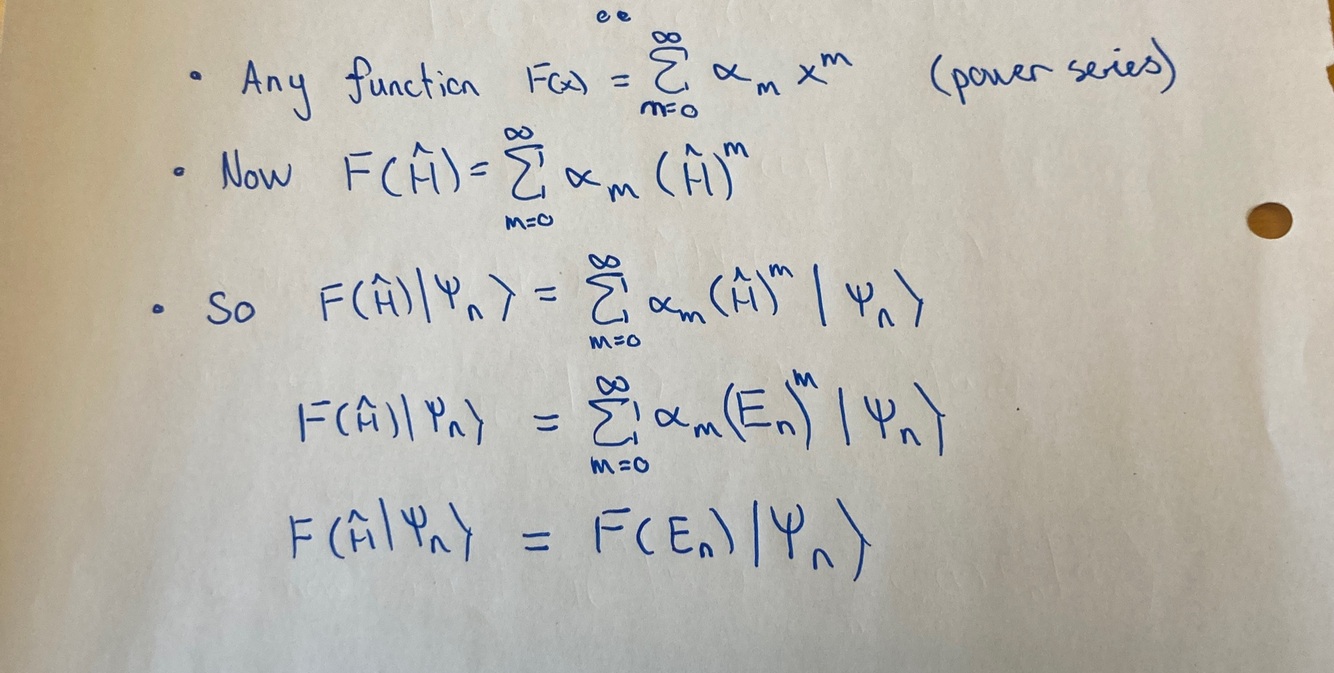 ee
• Any function F(x) = ∑_{m=0}^{∞} α_m x^m (power series)
• Now F(Ĥ) = ∑_{m=0}^{∞} α_m (Ĥ)^m
• So F(Ĥ)|Ψ_n⟩ = ∑_{m=0}^{∞} α_m (Ĥ)^m |Ψ_n⟩
F(Ĥ)|Ψ_n⟩ = ∑_{m=0}^{∞} α_m (E_n)^m |Ψ_n⟩
F(Ĥ|Ψ_n⟩ = F(E_n)|Ψ_n⟩